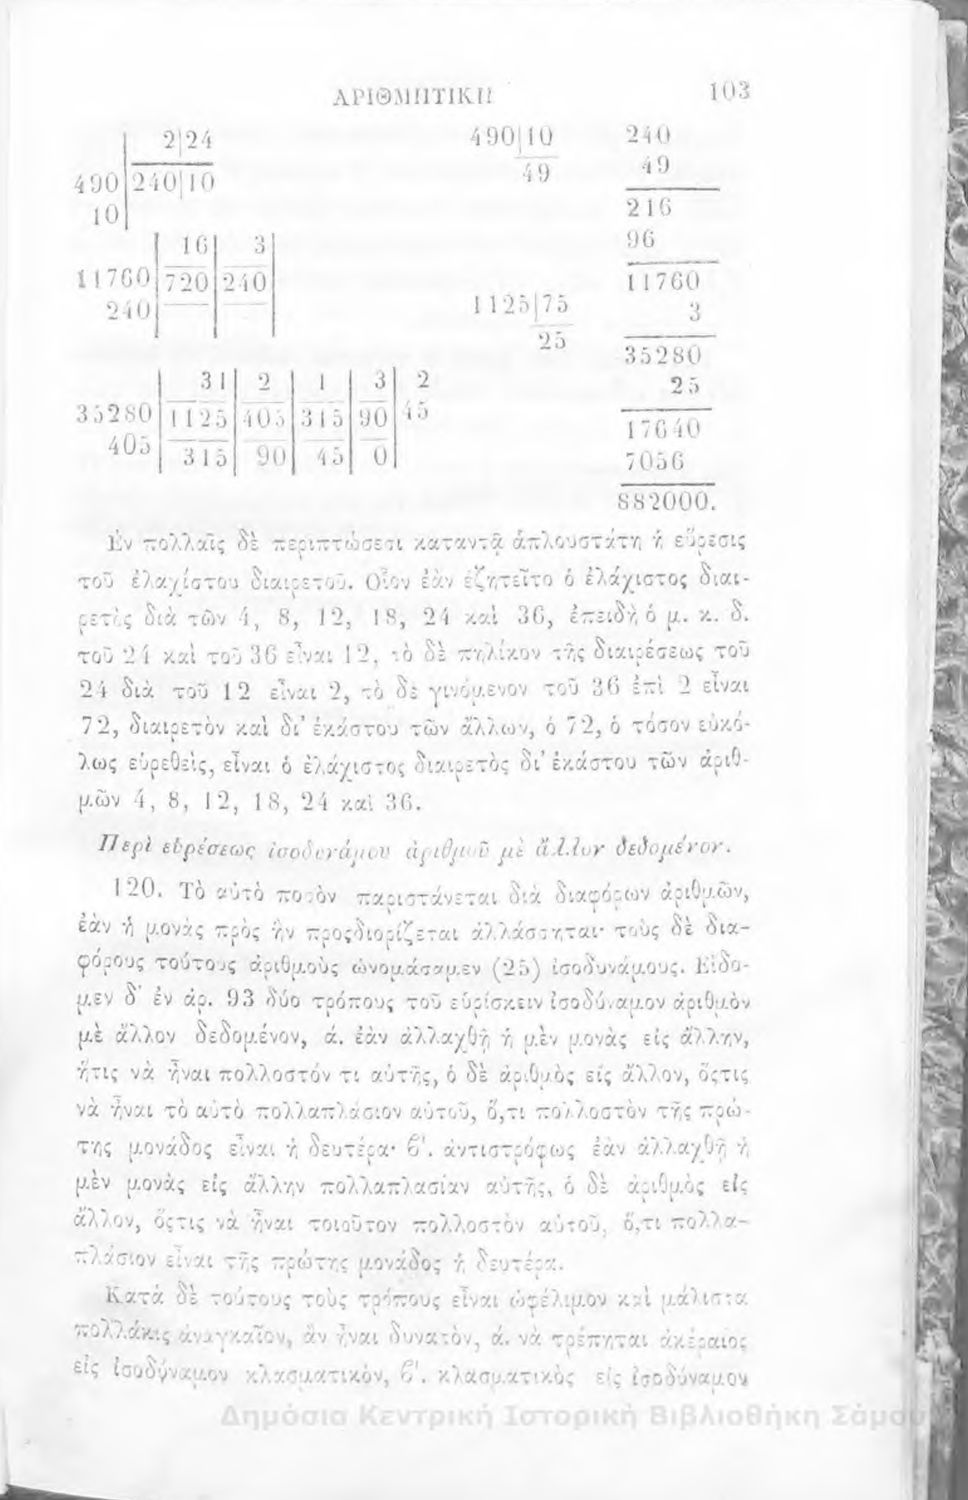 ΑΡΙΘΜΗΤΙΚΗ 103
2|24 490|10 240
490 240|10 49 49
10 216
16 3 96
11760 720 240 11760
240 1125|75 3
25 35280
31 2 1 3 2 25
35280 1125 405 315 90 45 17640
405 315 90 45 0 7056
882000.
Ἐν πολλαῖς δὲ περιπτώσεσι καταντᾷ ἁπλουστάτη ἡ εὕρεσις
τοῦ ἐλαχίστου διαιρετοῦ. Οἷον ἐὰν ἐζητεῖτο ὁ ἐλάχιστος διαι-
ρετὸς διὰ τῶν 4, 8, 12, 18, 24 καὶ 36, ἐπειδὴ ὁ μ. κ. δ.
τοῦ 24 καὶ τοῦ 36 εἶναι 12, τὸ δὲ πηλίκον τῆς διαιρέσεως τοῦ
24 διὰ τοῦ 12 εἶναι 2, τὸ δὲ γινόμενον τοῦ 36 ἐπὶ 2 εἶναι
72, διαιρετὸν καὶ δι' ἑκάστου τῶν ἄλλων, ὁ 72, ὁ τόσον εὐκό-
λως εὑρεθεὶς, εἶναι ὁ ἐλάχιστος διαιρετὸς δι' ἑκάστου τῶν ἀριθ-
μῶν 4, 8, 12, 18, 24 καὶ 36.
Περὶ εὑρέσεως ἰσοδυνάμου ἀριθμοῦ μὲ ἄλλον δεδομένον.
120. Τὸ αὐτὸ ποσὸν παριστάνεται διὰ διαφόρων ἀριθμῶν,
ἐὰν ἡ μονὰς πρὸς ἣν προςδιορίζεται ἀλλάσσηται· τοὺς δὲ δια-
φόρους τούτους ἀριθμοὺς ὠνομάσαμεν (25) ἰσοδυνάμους. Εἴδο-
μεν δ' ἐν ἀρ. 93 δύο τρόπους τοῦ εὑρίσκειν ἰσοδύναμον ἀριθμὸν
μὲ ἄλλον δεδομένον, ά. ἐὰν ἀλλαχθῇ ἡ μὲν μονὰς εἰς ἄλλην,
ἥτις νὰ ἦναι πολλοστόν τι αὐτῆς, ὁ δὲ ἀριθμὸς εἰς ἄλλον, ὅςτις
νὰ ἦναι τὸ αὐτὸ πολλαπλάσιον αὐτοῦ, ὅ,τι πολλοστὸν τῆς πρώ-
της μονάδος εἶναι ἡ δευτέρα· ϐ'. ἀντιστρόφως ἐὰν ἀλλαχθῇ ἡ
μὲν μονὰς εἰς ἄλλην πολλαπλασίαν αὐτῆς, ὁ δὲ ἀριθμὸς εἰς
ἄλλον, ὅςτις νὰ ἦναι τοιοῦτον πολλοστὸν αὐτοῦ, ὅ,τι πολλα-
πλάσιον εἶναι τῆς πρώτης μονάδος ἡ δευτέρα.
Κατὰ δὲ τούτους τοὺς τρόπους εἶναι ὠφέλιμον καὶ μάλιστα
πολλάκις ἀναγκαῖον, ἂν ἦναι δυνατὸν, ά. νὰ τρέπηται ἀκέραιος
εἰς ἰσοδύναμον κλασματικόν, ϐ'. κλασματικὸς εἰς ἰσοδύναμον
Δημόσια Κεντρική Ιστορική Βιβλιοθήκη Σάμου